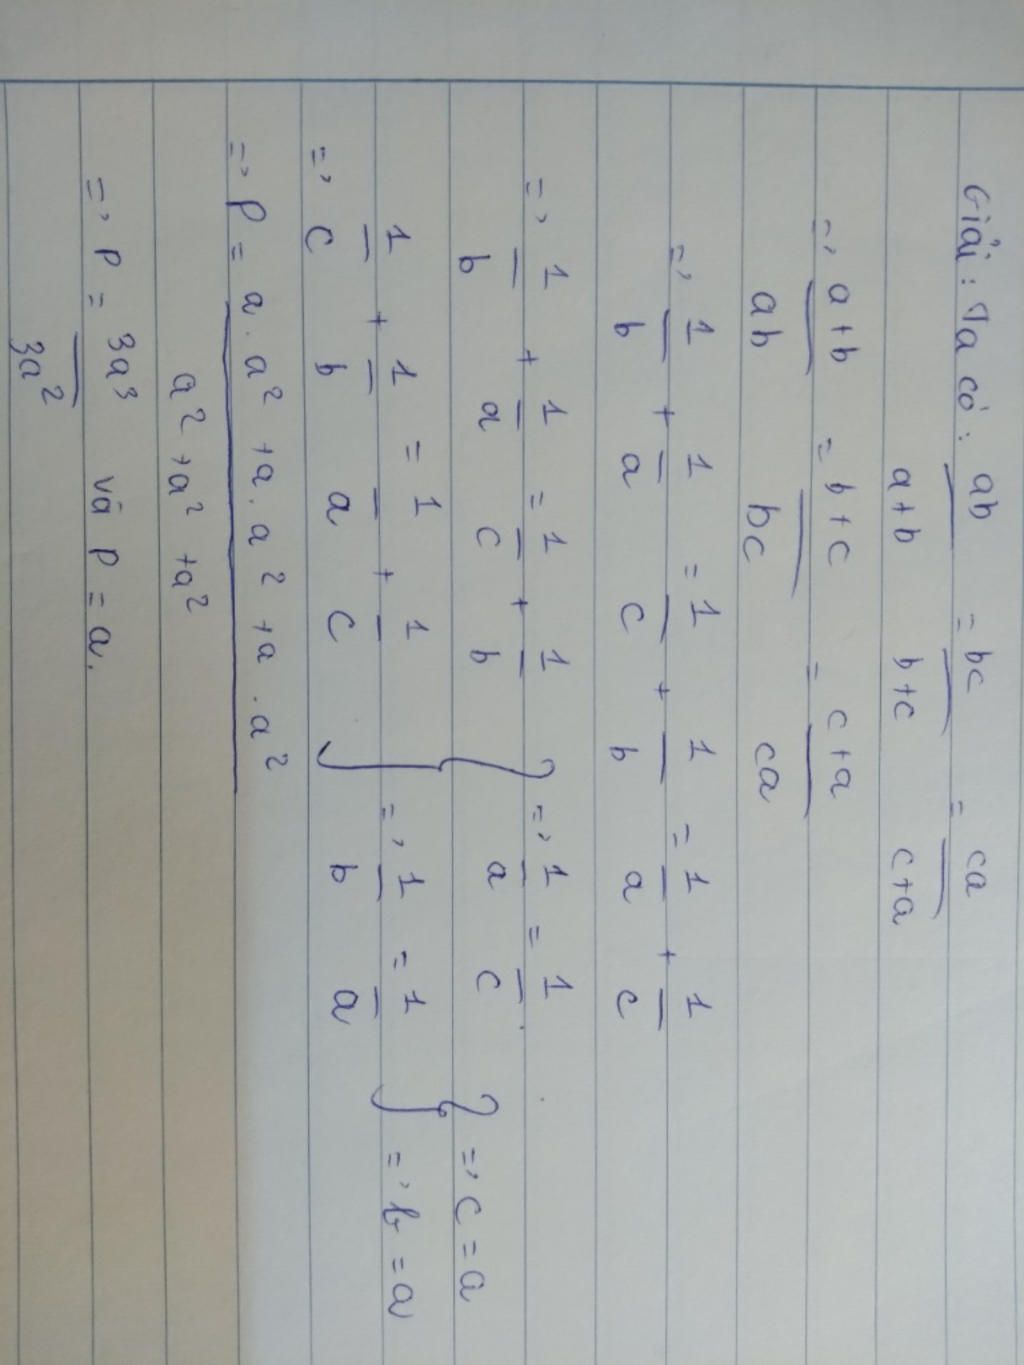 Giải: Ta có: ab/a+b = bc/b+c = ca/c+a
=> a+b/ab = b+c/bc = c+a/ca
=> 1/b + 1/a = 1/c + 1/b = 1/a + 1/c
=> 1/b + 1/a = 1/c + 1/b } => 1/a = 1/c } => c = a
=> 1/c + 1/b = 1/a + 1/c } => 1/b = 1/a } => b = a
=> P = a.a² + a.a² + a.a² / a² + a² + a²
=> P = 3a³/3a² và P = a.